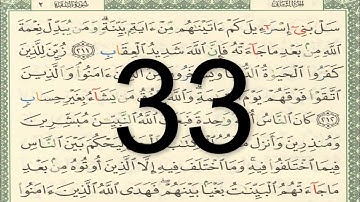 سَلْ بَنِىٓ إِسْرَٰٓءِيلَ كَمْ ءَاتَيْنَٰهُم مِّنْ ءَايَةٍۭ بَيِّنَةٍ ۗ وَمَن يُبَدِّلْ نِعْمَةَ
ٱللَّهِ مِنۢ بَعْدِ مَا جَآءَتْهُ فَإِنَّ ٱللَّهَ شَدِيدُ ٱلْعِقَابِ ٢١١ زُيِّنَ لِلَّذِينَ
كَفَرُوا۟ ٱلْحَيَوٰةُ ٱلدُّنْيَا وَيَسْخَرُونَ مِنَ ٱلَّذِينَ ءَامَنُوا۟ ۘ وَٱلَّذِينَ
ٱتَّقَوْا۟ فَوْقَهُمْ يَوْمَ ٱلْقِيَٰمَةِ ۗ وَٱللَّهُ يَرْزُقُ مَن يَشَآءُ بِغَيْرِ حِسَابٍ
33
٢١٢ كَانَ ٱلنَّاسُ أُمَّةً وَٰحِدَةً فَبَعَثَ ٱللَّهُ ٱلنَّبِيِّـۧنَ مُبَشِّرِينَ
وَمُنذِرِينَ وَأَنزَلَ مَعَهُمُ ٱلْكِتَٰبَ بِٱلْحَقِّ لِيَحْكُمَ بَيْنَ ٱلنَّاسِ
فِيمَا ٱخْتَلَفُوا۟ فِيهِ ۚ وَمَا ٱخْتَلَفَ فِيهِ إِلَّا ٱلَّذِينَ أُوتُوهُ مِنۢ بَعْدِ
مَا جَآءَتْهُمُ ٱلْبَيِّنَٰتُ بَغْيًۢا بَيْنَهُمْ ۖ فَهَدَى ٱللَّهُ ٱلَّذِينَ ءَامَنُوا۟